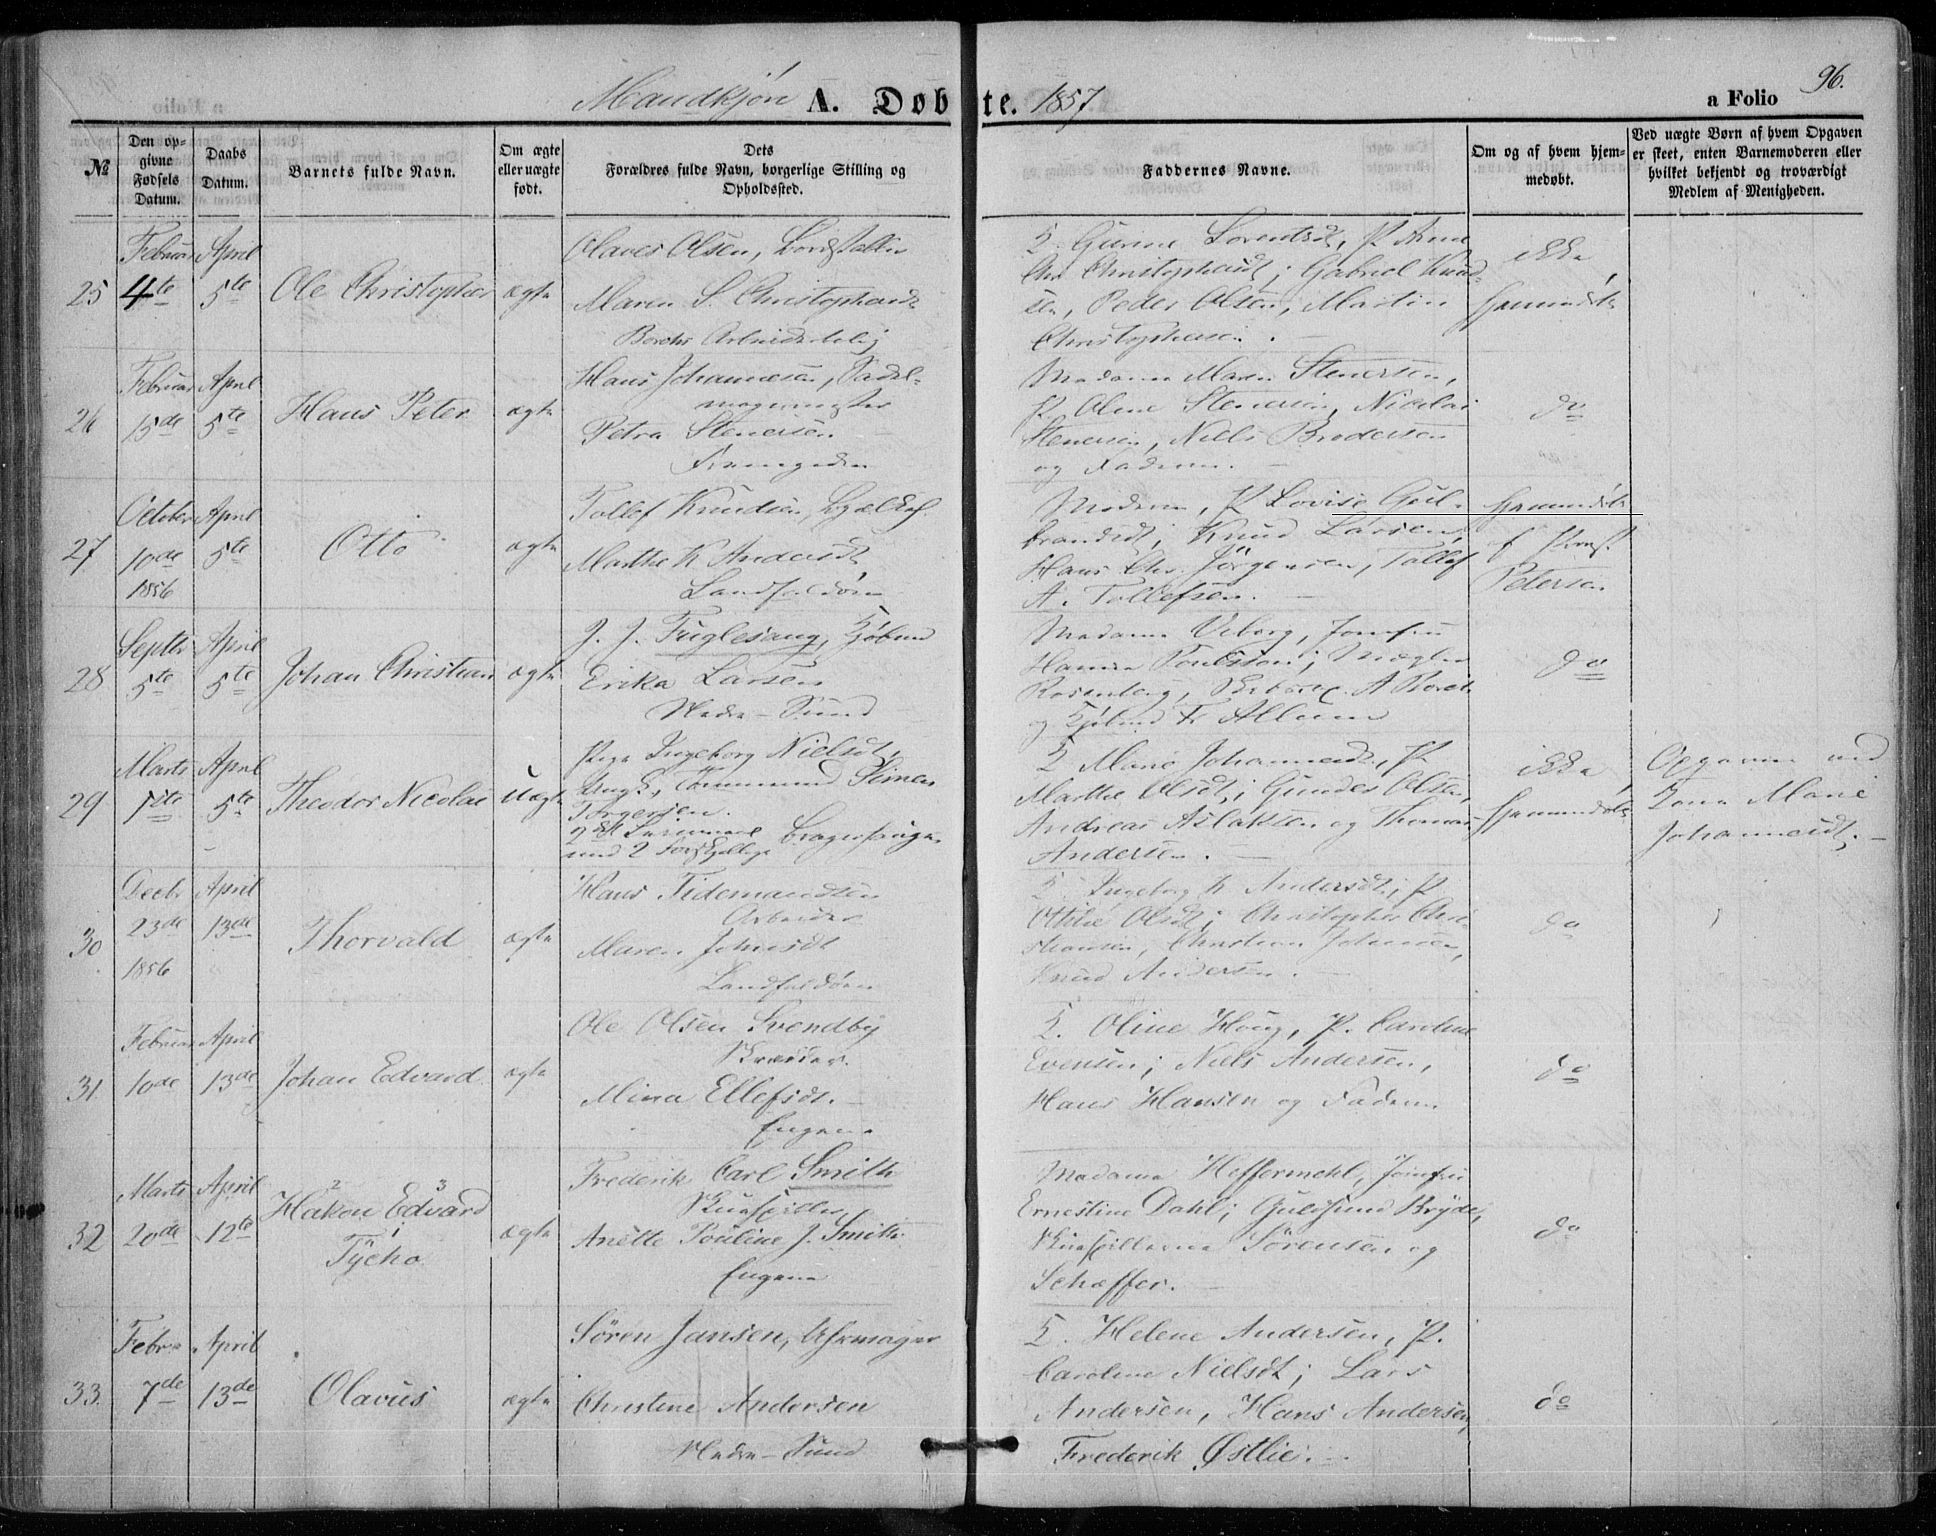 Mandkjøn A. Døbte. 1857
a Folio 96.
№
Den opgivne Fødsels Datum.
Daabs Datum.
Barnets fulde Navn.
Om ægte eller uægte født.
Dets Forældres fulde Navn, borgerlige Stilling og Opholdssted.
Faddernes Navne.
Om og af hvem hjemmedøbt.
Ved uægte Børn af hvem Opgaven er skeet, enten Barnemoderen eller hvilket bekjendt og troværdigt Medlem af Menigheden.
25
Februar
4te
April
5te
Ole Christopher
ægte
Olaves Olsen,
Maren S. Christophersdt
Borchs
K. Gurine Lorentsdt, P. Anne
Christophersdt; Gabriel Knud-
sen, Peder Olsen, Martin
Christophersen.
ikke
hjemmedøbt
26
Februar
15de
April
5te
Hans Peter
ægte
Hans Johannesen, Sadel-
magermester
Petra Stenersen
Madame Maren Stenersen,
P. Oline Stenersen, Nicolai
Stenersen, Niels Brodersen
og Faderen.
do
27
October
10de
1856
April
5te
Otto
ægte
Tollef Knudsen,
Marthe K. Andersdt
Landfaldøen
Moderen, P. Lovise Gul-
brandsdt; Knud Larsen,
Hans Chr. Jörgensen, Tollef
A. Tollefsen.
Hjemmedøbt
af
Petersen
28
Septbr
5te
April
5te
Johan Christian
ægte
J. J. Fuglesang, Kjøbmd
Erika Larsen
Nedre-Sund
Madame Viborg, Jomfru
Hanna Poulsson; Mægler
Rosenberg,
og Kjøbmd Fr. Allum
do
29
Marts
1ste
April
5te
Theodor Nicolai
uægte
Pige Ingeborg Nielsdt,
Ungk, Tømmermand Simen
Torgersen.
med 2 forskjellige
K. Marie Johannesdt, P.
Marthe Olsdt; Gunder Olsen,
Andreas Aslaksen og Thomas
Andersen.
ikke
hjemmedøbt
Opgaven ved
Kone Marie
Johannesdt.
30
Decbr
23de
1856
April
13de
Thorvald
ægte
Hans Tidemandsen
Arbeider
Maren Johnsdt
Landfaldøen
K. Ingeborg K. Andersdt; P.
Othilie Olsdt; Christopher Chri-
stiansen, Christian Johnsen,
Knud Andersen.
do
31.
Februar
10de
April
13de
Johan Edvard
ægte
Ole Olsen Svendby
Skræder.
Mina Ellefsdt.
Engene
K. Oline Houg, P. Caroline
Evensen; Niels Andersen,
Hans Hansen og Faderen.
do
32
Marts
20de
April
12te
2 3
Hakon Edvard
1
Tycho
ægte
Frederik Carl Smith
Skuespiller
Anette Pouline J. Smith
Engene
Madame Heffermehl, Jomfru
Ernestine Dahl; Guldsmed Bryde,
Skuespillerne Sörensen og
Schæffer.
do
33.
Febr.
7de
April
13de
Olavus
ægte
Sören Jansen, Uhrmager
Christine Andersen
Nedre-Sund
K. Helene Andersen, P.
Caroline Nielsdt; Lars
Andersen, Hans Andersen,
Frederik Østlie.
do